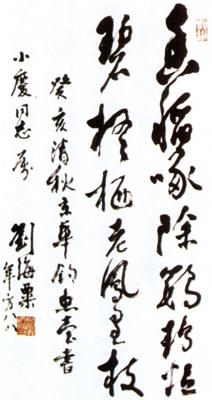 香稻啄餘鸚鵡粒
碧梧栖老鳳皇枝
癸亥清秋京華釣魚臺書
小慶同志屬
劉海粟
年方八八